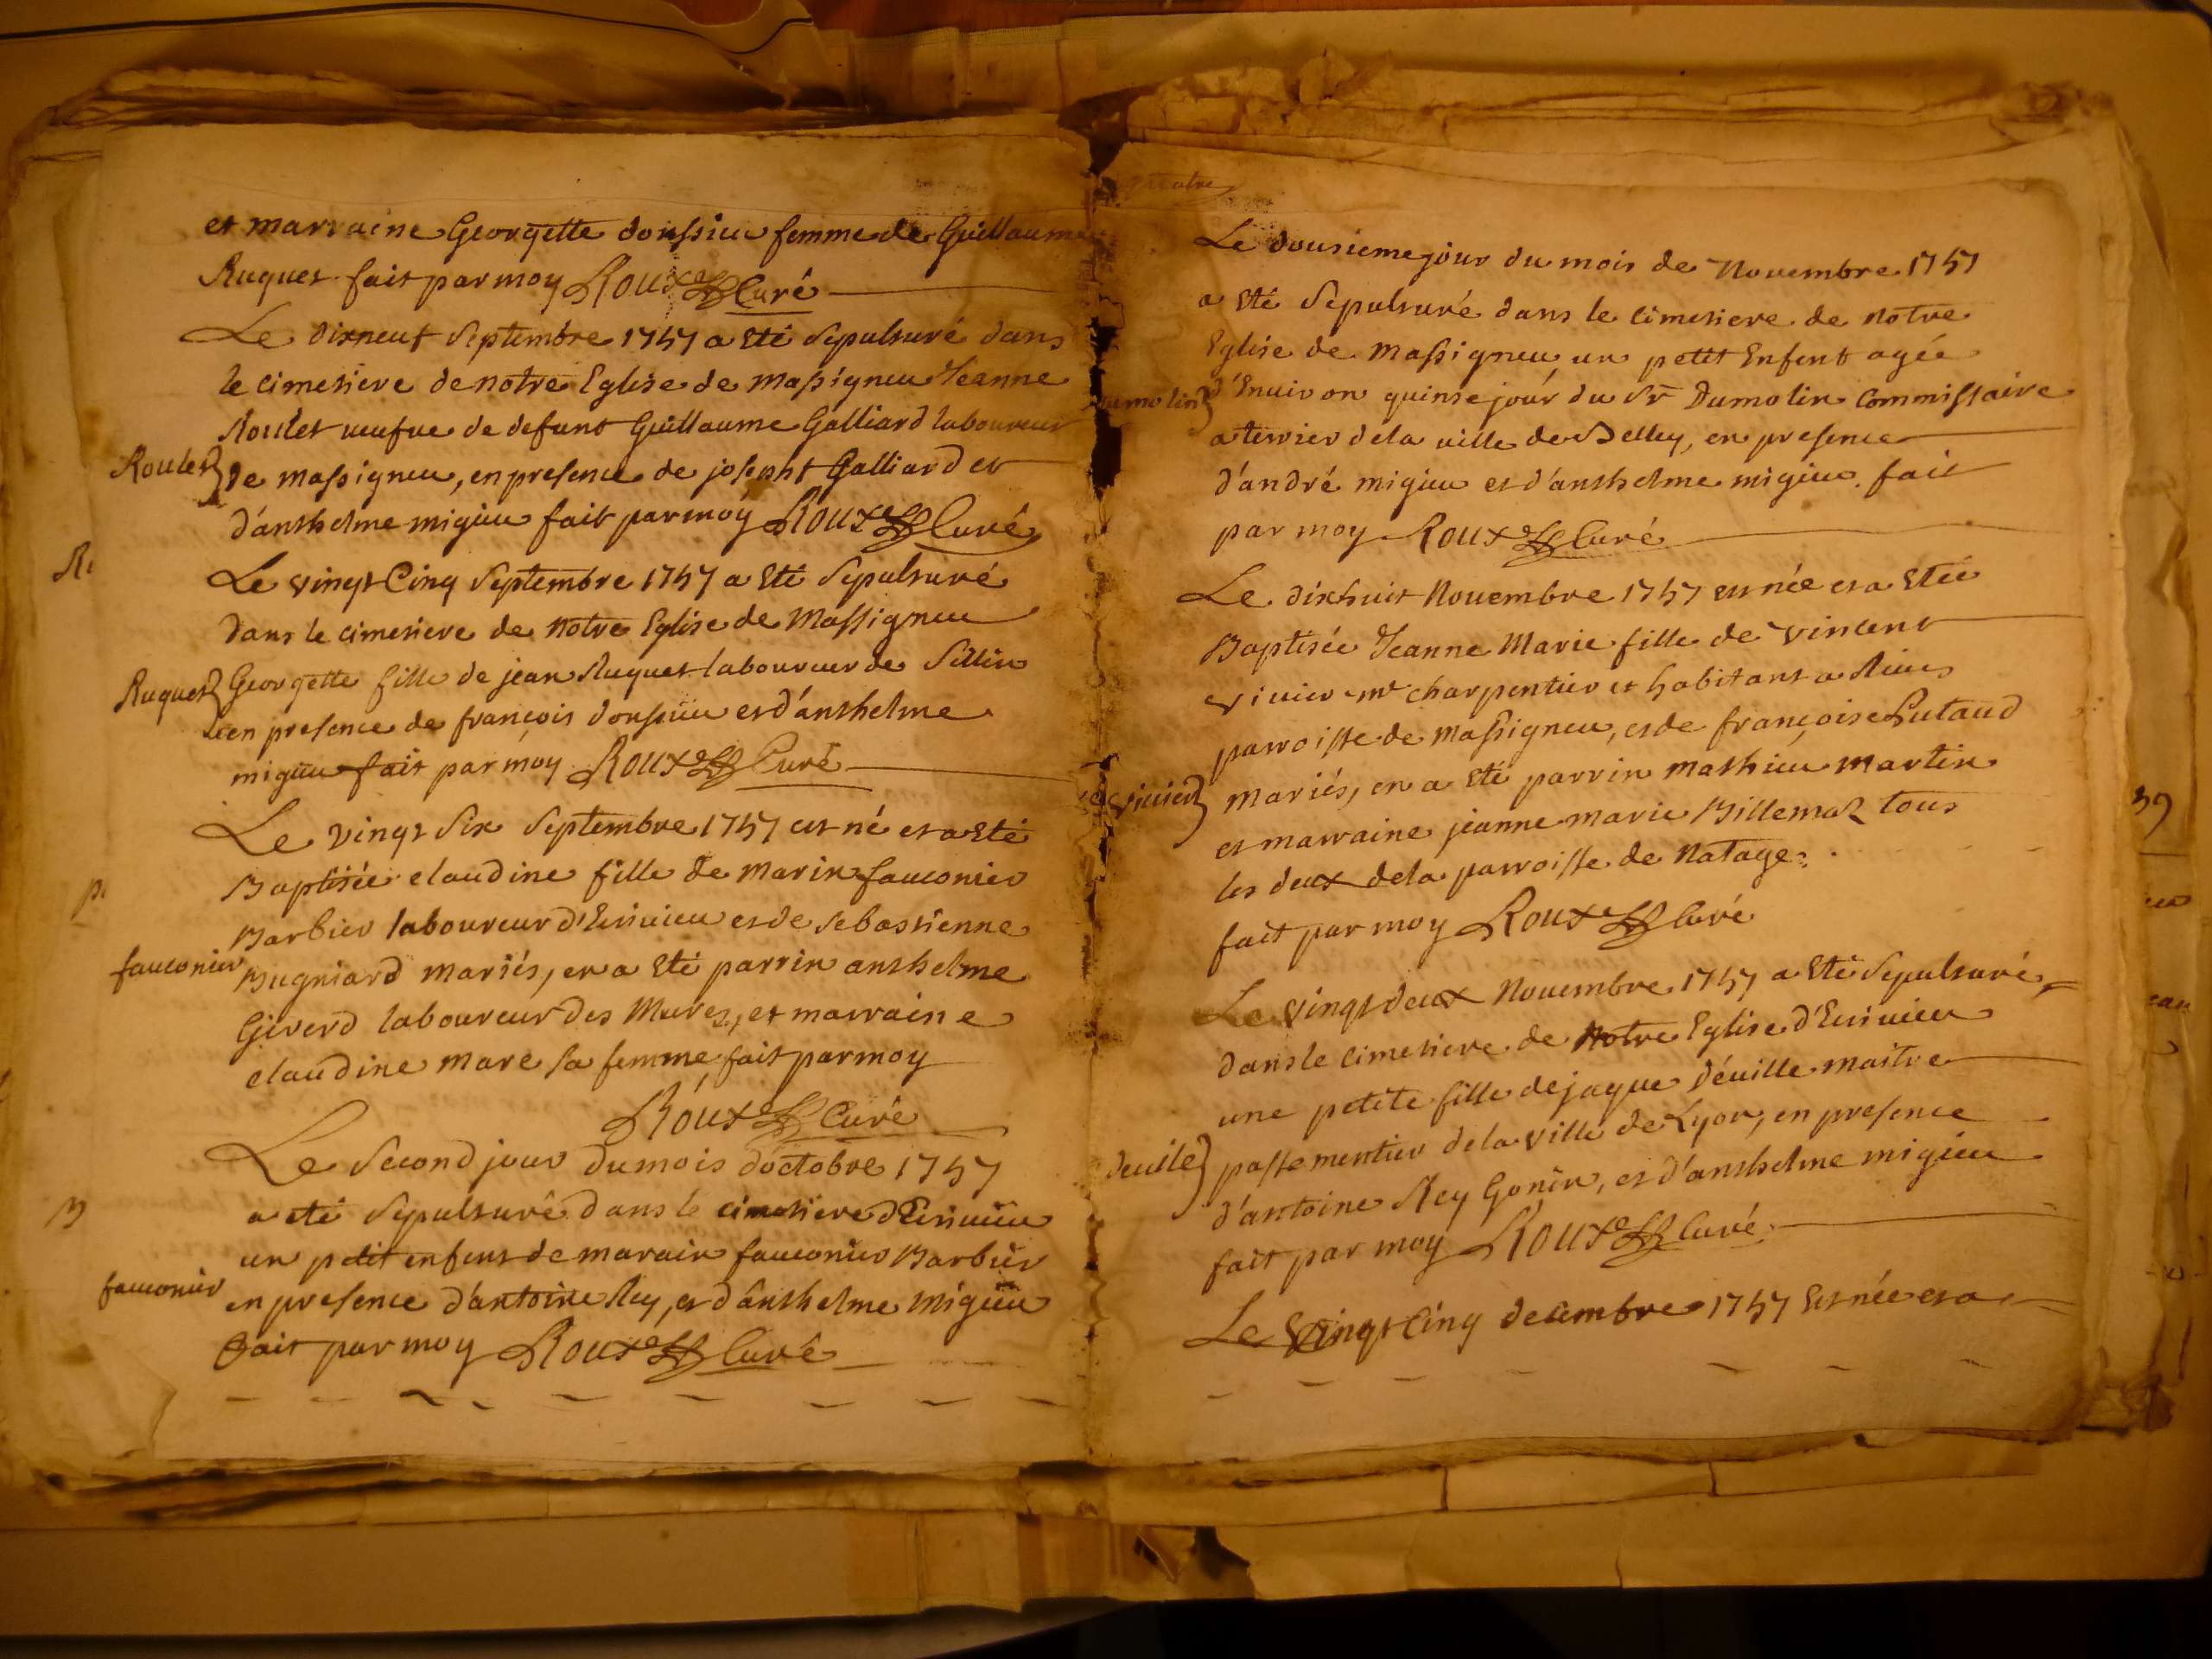 et marraine Georgette donssieu femme de Guillaume
Ruquet fait par moy Roux Curé
Le dixneuf Septembre 1757 a Eté Sepulturé dans
le cimetiere de notre Eglise de Massigneu Jeanne
Roulet veufve de defunt Guillaume Galliard laboureur
Roulet de Massigneu, en presence de josepht Galliard et
d'anthelme migieu fait par moy Roux Curé
Le vingt Cinq Septembre 1757 a Eté Sepulturé
dans le cimetiere de notre Eglise de Massigneu
Ruquet Georgette fille de jean Ruquet laboureur de Sillin
en presence de françois donssieu et d'anthelme
migieu fait par moy Roux Curé
Le vingt Six Septembre 1757 est né et a Eté
Baptisée claudine fille de marin fauconier
Barbier laboureur d'Ecrivieu et de sebastienne
fauconier Bugniard mariés, en a Eté parrin anthelme
Gir<span></span>erd laboureur des Mures, et marraine
claudine mare sa femme fait par moy
Roux Curé
Le Second jour du mois d'octobre 1757
a eté Sepulturé dans le cimetiere d'Ecrivieu
un petit enfent de marain fauconier Barbier
fauconier en presence d'antoine Rey, et d'anthelme Migieu
fait par moy Roux Curé
Le dousieme jour du mois de Novembre 1757
a Eté Sepulturé dans le cimetiere de notre
Eglise de Massigneu, un petit Enfent agée
dumolin d'Environ quinse jour du Sr Dumolin Commissaire
a terrier de la ville de Belley, en presence
d'andré migieu et d'anthelme migieu. fait
par moy Roux Curé
Le dixhuit Novembre 1757 est née et a Etée
Baptisée Jeanne Marie fille de vincent
vivier mr charpentier et habitant a Rives
parroisse de Massigneu, et de françoise Lutaud
vivier mariés, en a Eté parrin mathieu martin
et marraine jeanne marie Billemaz tous
les deux de la parroisse de Natage.
fait par moy Roux Curé
Le vingt deux Novembre 1757 a Eté Sepulturé
dans le cimetiere de Notre Eglise d'Ecrivieu
une petite fille de jaque déville maitre
deville passementier de la ville de Lyon, en presence
d'antoine Rey Gonin, et d'anthelme migieu
fait par moy Roux Curé
Le vingt Cinq decembre 1757 Est née et a